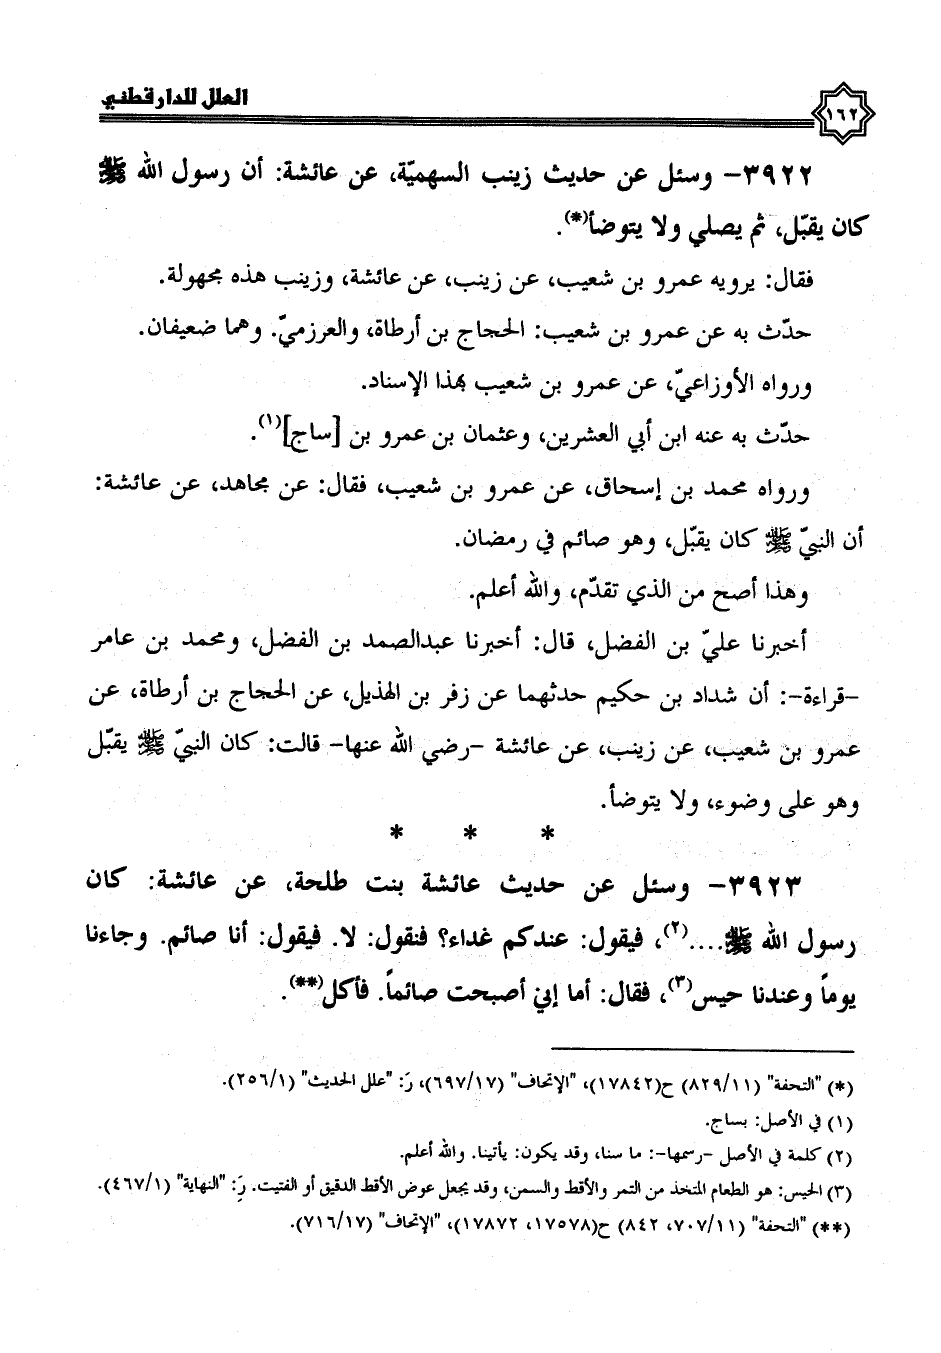 العلل للدارقطني
١٦٢
٣٩٢٢- وسئل عن حديث زينب السهميّة، عن عائشة: أن رسول الله ﷺ
كان يقبّل، ثم يصلي ولا يتوضأ(*).
فقال: يرويه عمرو بن شعيب، عن زينب، عن عائشة، وزينب هذه مجهولة.
حدّث به عن عمرو بن شعيب: الحجاج بن أرطاة، والعرزميّ. وهما ضعيفان.
ورواه الأوزاعيّ، عن عمرو بن شعيب بهذا الإسناد.
حدّث به عنه ابن أبي العشرين، وعثمان بن عمرو بن [ساج](١).
ورواه محمد بن إسحاق، عن عمرو بن شعيب، فقال: عن مجاهد، عن عائشة:
أن النبيّ ﷺ كان يقبّل، وهو صائم في رمضان.
وهذا أصح من الذي تقدّم، والله أعلم.
أخبرنا عليّ بن الفضل، قال: أخبرنا عبدالصمد بن الفضل، ومحمد بن عامر
-قراءة-: أن شداد بن حكيم حدثهما عن زفر بن الهذيل، عن الحجاج بن أرطاة، عن
عمرو بن شعيب، عن زينب، عن عائشة -رضي الله عنها- قالت: كان النبيّ ﷺ يقبّل
وهو على وضوء، ولا يتوضأ.
* * *
٣٩٢٣- وسئل عن حديث عائشة بنت طلحة، عن عائشة: كان
رسول الله ﷺ....(٢)، فيقول: عندكم غداء؟ فنقول: لا. فيقول: أنا صائم. وجاءنا
يوماً وعندنا حيس(٣)، فقال: أما إني أصبحت صائماً. فأكل(**).
(*) "التحفة" (١١/٨٢٩) ح(١٧٨٤٢)، "الإتحاف" (١٧/٦٩٧)، رَ: "علل الحديث" (١/٢٥٦).
(١) في الأصل: بساج.
(٢) كلمة في الأصل -رسمها-: ما سنا، وقد يكون: يأتينا. والله أعلم.
(٣) الحيس: هو الطعام المتخذ من التمر والأقط والسمن، وقد يجعل عوض الأقط الدقيق أو الفتيت. رَ: "النهاية" (١/٤٦٧).
(**) "التحفة" (١١/٧٠٧، ٨٤٢) ح(١٧٥٧٨، ١٧٨٧٢)، "الإتحاف" (١٧/٧١٦).